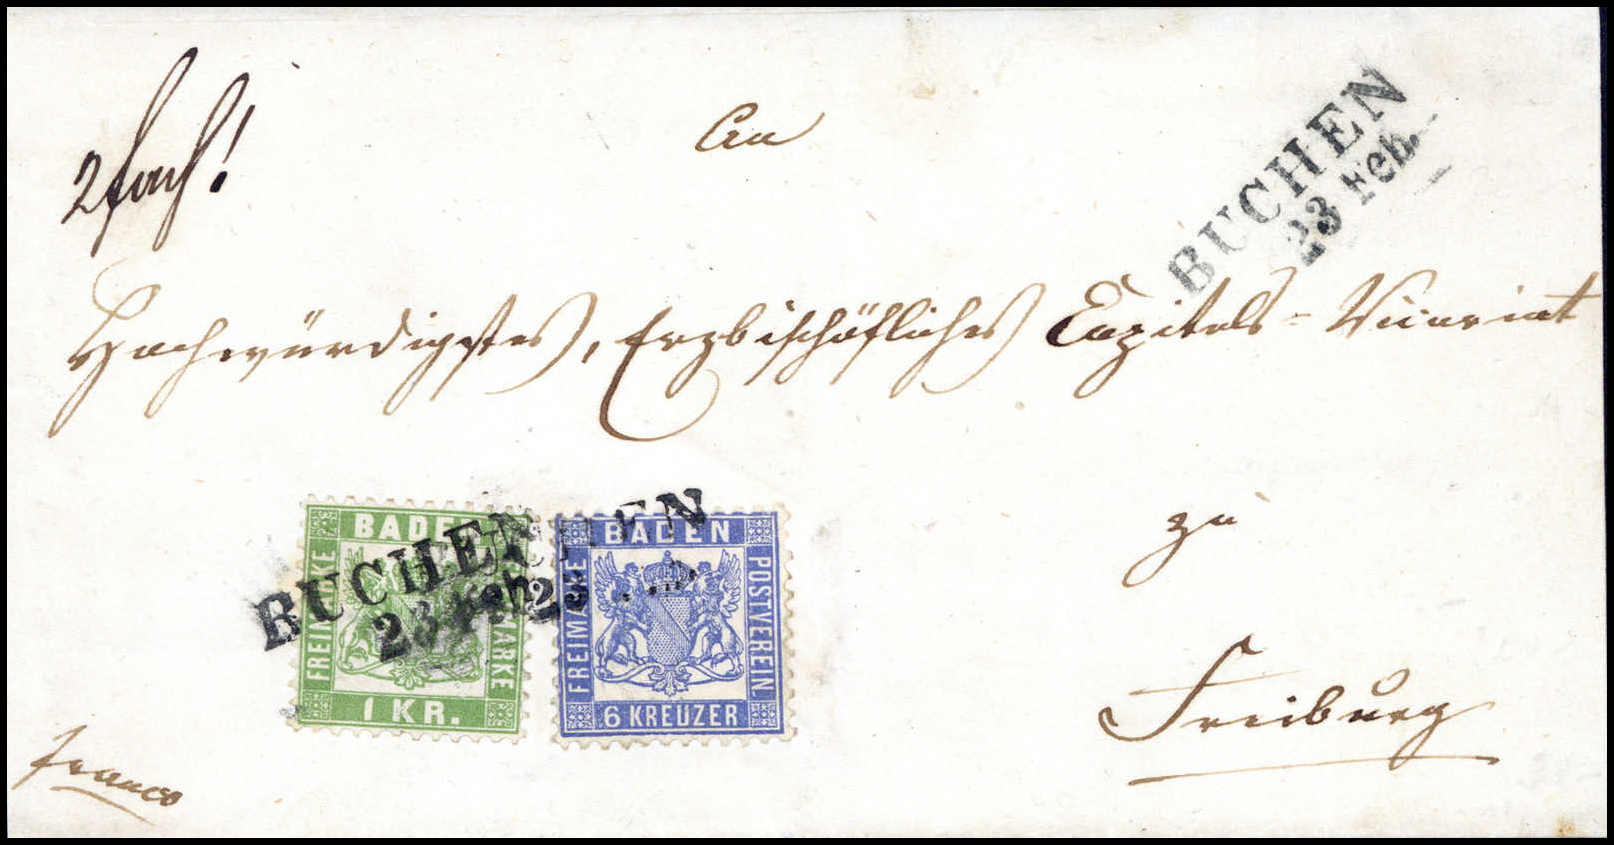 2fach!
An
BUCHEN
23 Feb.
Hochwürdigstes, Erzbischöfliches Capitels-Vicariat
BUCHEN
23 Feb.
BADEN
FREIMARKE
1 KR.
BADEN
FREIMARKE
POSTVEREIN
6 KREUZER
zu
Freiburg
franco